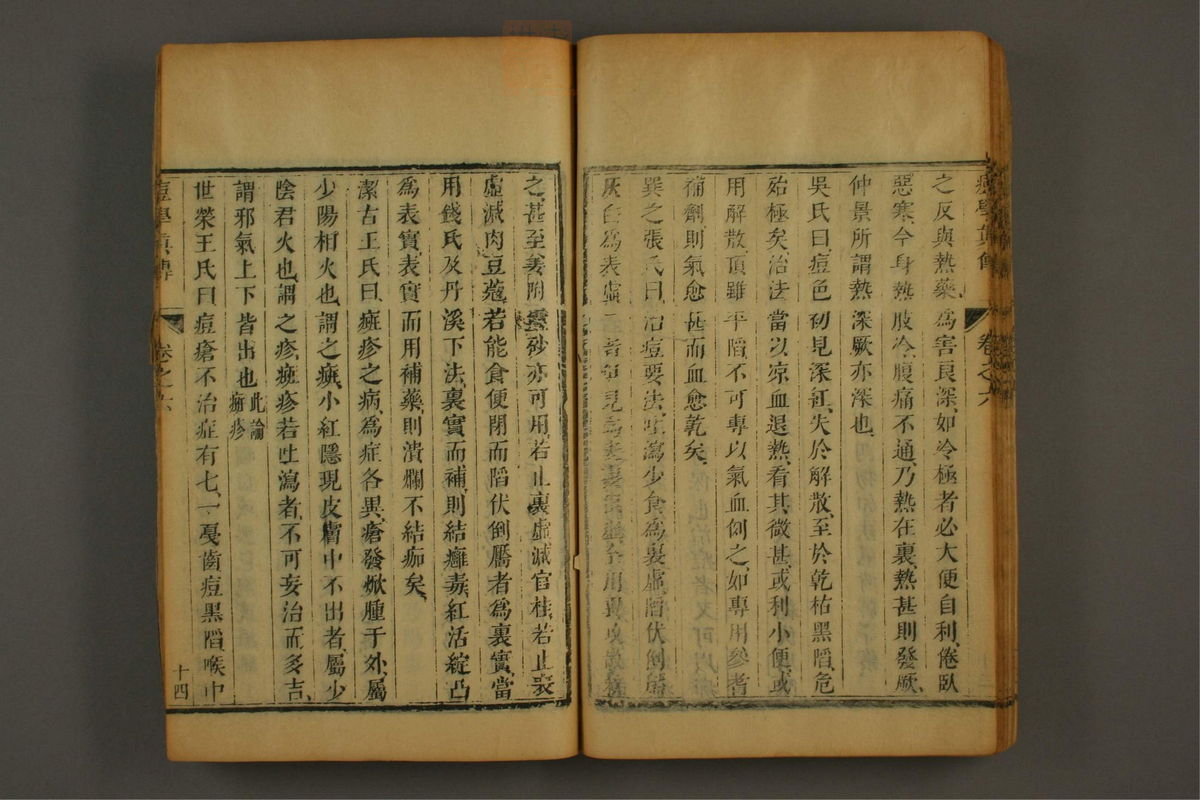 痘學眞傳 卷之六
之反與熱藥爲害良深如冷極者必大便自利倦臥
惡寒今身熱肢冷腹痛不通乃熱在裏熱甚則發厥
仲景所謂熱深厥亦深也
吳氏曰痘色初見深紅失於解散至於乾枯黑陷危
殆極矣治法當以凉血退熱看其微甚或利小便或
用解散頂雖平陷不可專以氣血例之如專用參耆
補劑則氣愈甚而血愈乾矣
巽之張氏曰治痘要法吐瀉少食爲裏虛陷伏倒靨
灰白爲表虛二者
之甚至姜附靈砂亦可用若止裏虛減官桂若止表
虛減肉豆蔻若能食便閉而陷伏倒靨者爲裏實當
用錢氏及丹溪下法裏實而補則結癰毒紅活綻凸
爲表實表實而用補藥則潰爛不結痂矣
潔古王氏曰斑疹之病爲症各異瘡發焮腫于外屬
少陽相火也謂之斑小紅隱現皮膚中不出者屬少
陰君火也謂之疹斑疹若吐瀉者不可妄治而多吉
謂邪氣上下皆出也此論
斑疹
世榮王氏曰痘瘡不治症有七一戛齒痘黑陷喉中
痘學眞傳 卷之六
十四